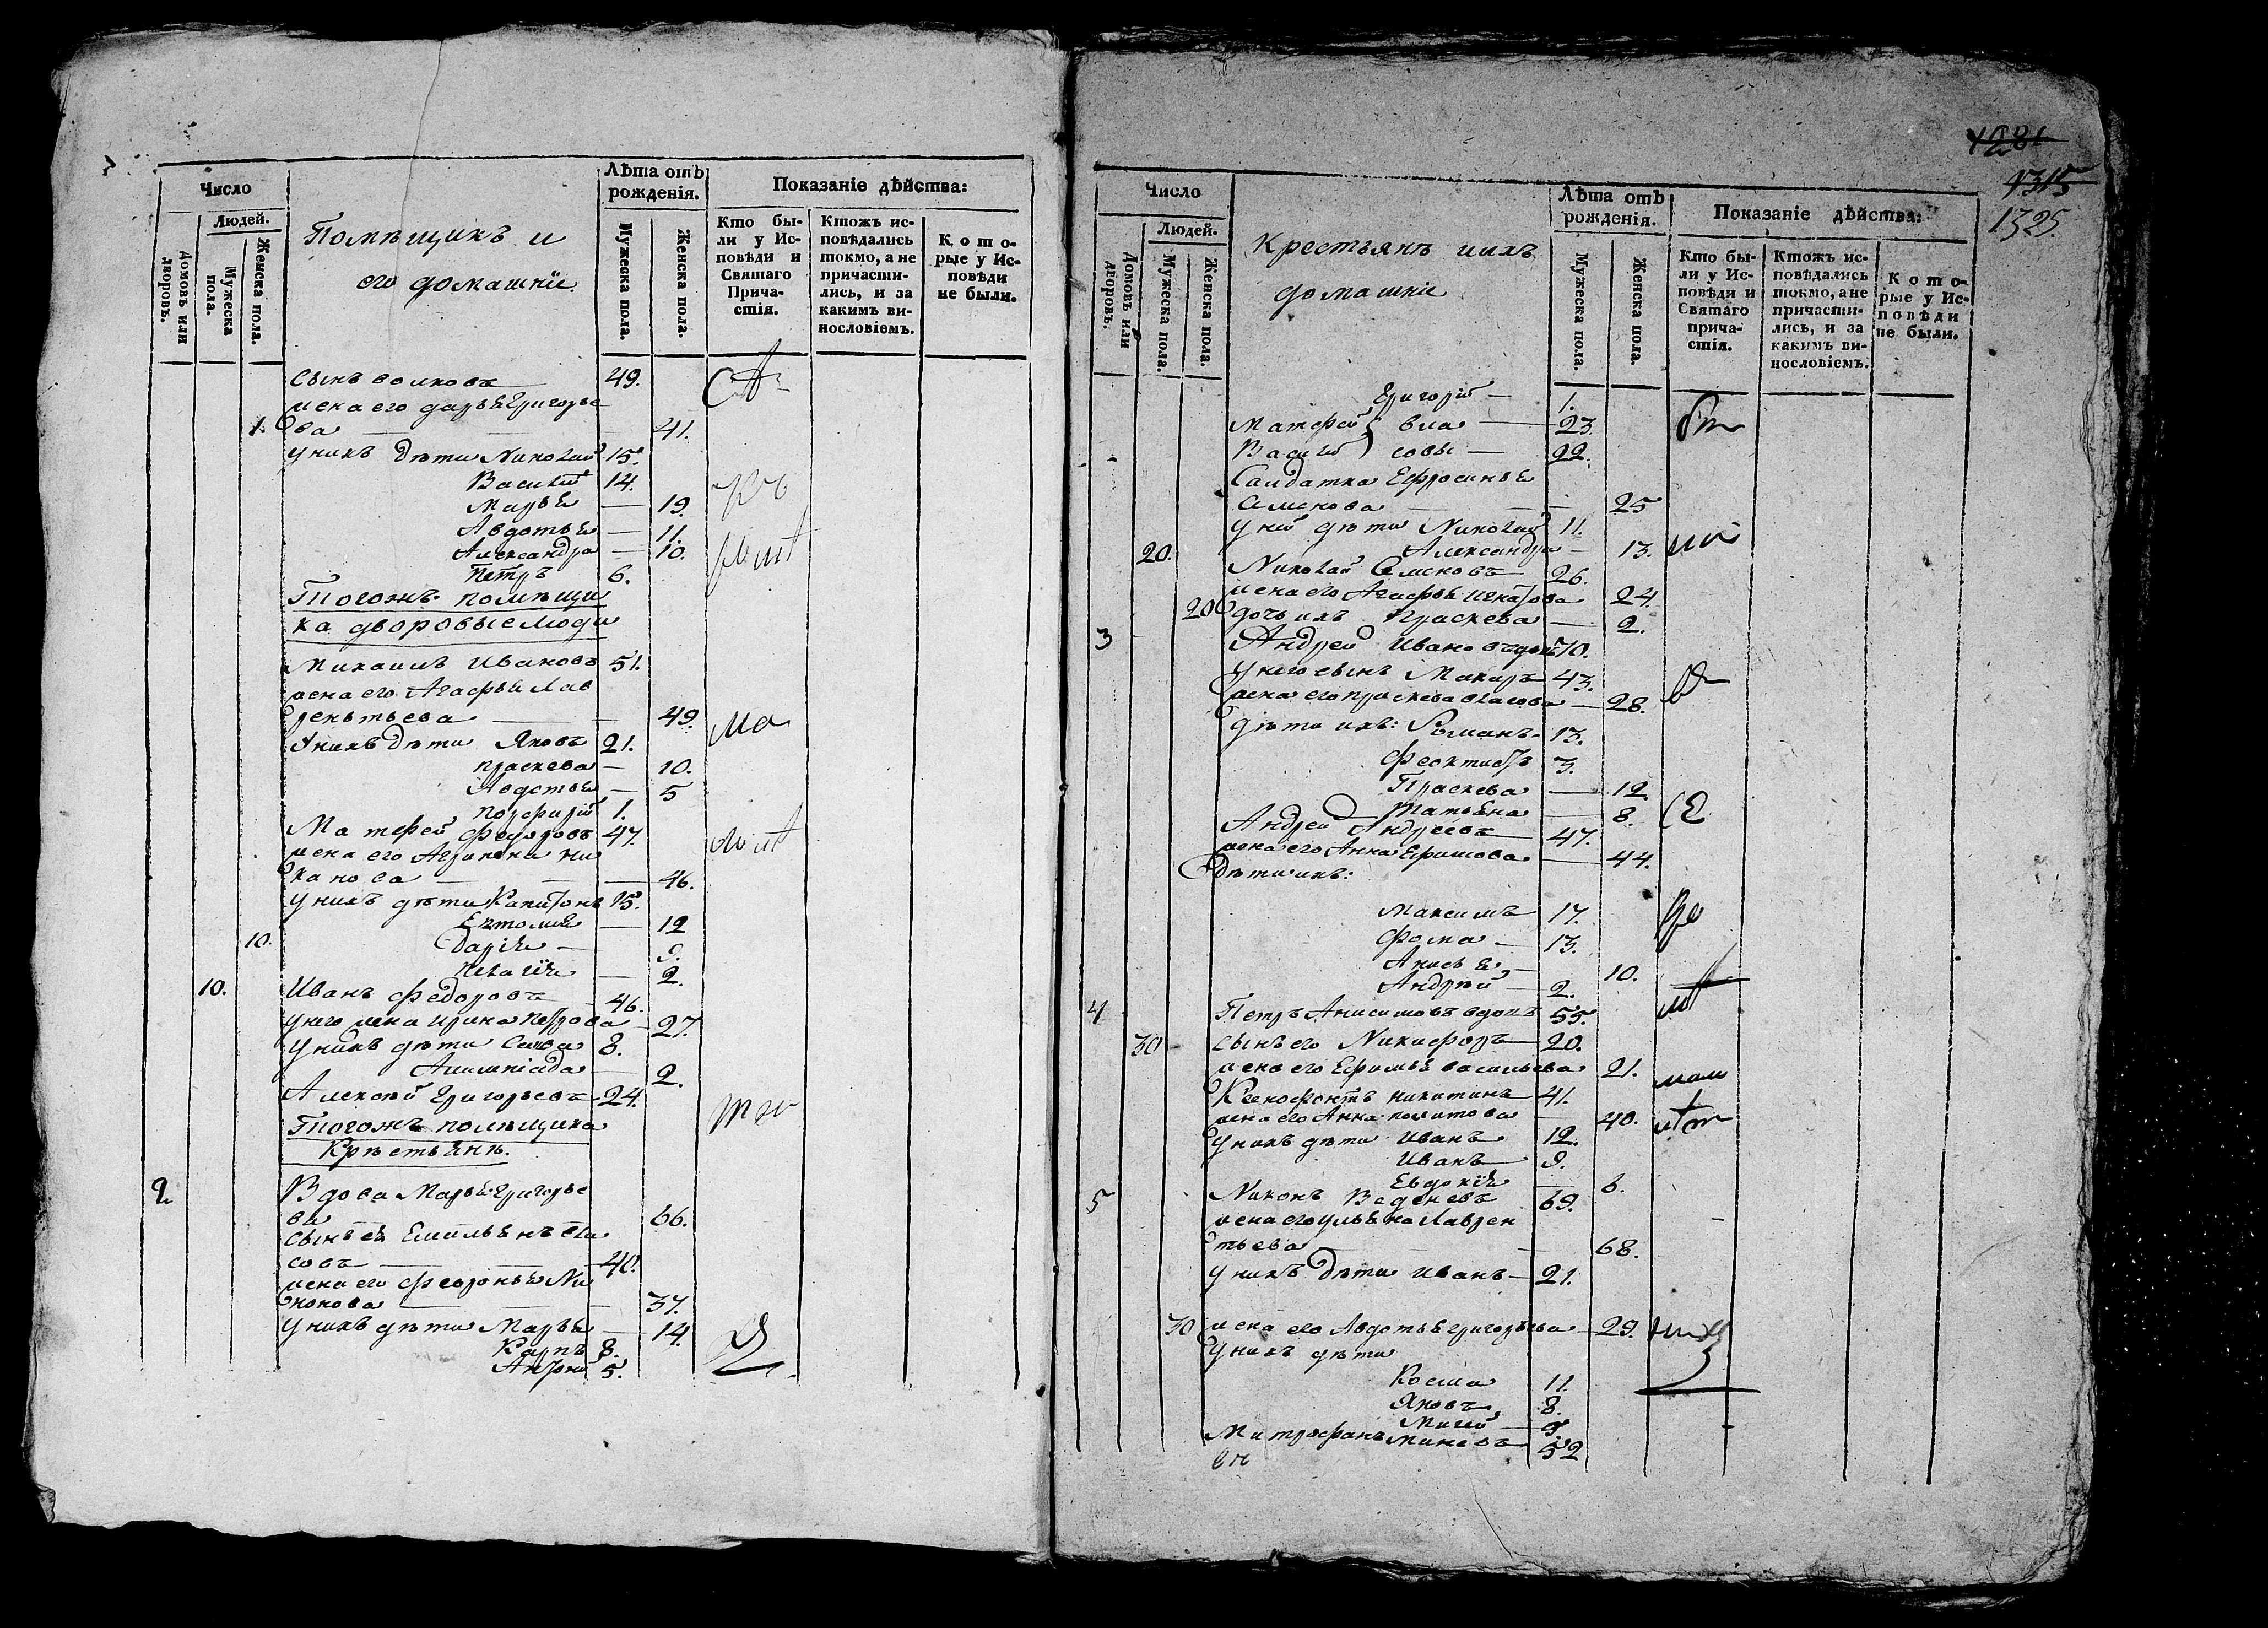 Число
Людей.
Домовъ или дворовъ.
Мужеска пола.
Женска пола.
Помѣщикъ и
его домашніе
Лѣта отъ рожденія.
Мужеска пола.
Женска пола.
Показаніе дѣйства:
Кто бы-
ли у Ис-
повѣди и
Святаго
Прича-
стія.
Ктожъ ис-
повѣдались
токмо, а не
причасти-
лись, и за
какимъ ви-
нословіемъ.
Кото-
рые у Ис-
повѣди
не были.
сынъ волковъ 49.
жена его дарья Григорье
1. ва 41.
у нихъ дѣти Николай 15.
Василій 14.
Марья 19.
Авдотья 11.
Александра 10.
Петръ 6.
Тогожъ помѣщи
ка дворовые люди
Михаилъ Ивановъ 51.
жена его Агафья Лав
рентьева 49.
у нихъ дѣти Яковъ 21.
праскева 10.
Авдотья 5
порфирій 1.
Матфей Федоровъ 47.
жена его Агрипена ни
канова 46.
у нихъ дѣти Капитонъ 15.
12
10. Дарія 9.
пелагія 2.
10. Иванъ Федоровъ 46.
у него жена ирина петрова 27.
у нихъ дѣти Савва 8.
2.
Алексѣй Григорьевъ 24.
Тогожъ помѣщика
Крѣстьянѣ.
2 Вдова Марья Григорье
ва 66.
сынъ ея Емильянъ вла
совъ 40.
жена его Февронья Ни
конова 37.
у нихъ дѣти Марья 14.
Карпъ 8.
5.
1281
1315
1325
Число
Людей.
Домовъ или дворовъ.
Мужеска пола.
Женска пола.
Крестьянъ ихъ
домашніе
Лѣта отъ рожденія.
Мужеска пола.
Женска пола.
Показаніе дѣйства:
Кто бы-
ли у Ис-
повѣди и
Святаго
прича-
стія.
Ктожъ ис-
повѣдались
токмо, а не
причасти-
лись, и за
какимъ ви-
нословіемъ.
Кото-
рые у Ис-
повѣди
не были.
Григорій 1.
Матфей вла 23.
Василій совы 22.
Салдатка Ефросинья
Семенова 25
у ней дѣти Николай 11.
20. Александра 13.
Николай Семеновъ 26.
жена его Агафья Игнатова 24.
20 дочь ихъ Праскева 2.
3 Андрей Ивановъ вдовъ 70.
у него сынъ Макаръ 43.
жена его праскева власова 28.
дѣти ихъ: Романъ 13.
Феоктистъ 3.
Праскева 12.
Татьяна 8.
Андрей Андреевъ 47.
жена его Анна Ефимова 44.
Дѣти ихъ:
Максимъ 17.
Фома 13.
Анисья 10.
Андрѣй 2.
4 Петръ Анисимовъ вдовъ 55.
30 сынъ его Никифоръ 20.
жена его Ефимья васильева 21.
Ксенофонтъ никитинъ 41.
жена его Анна политова 40.
у нихъ дѣти Иванъ 12.
Иванъ 9.
Евдокія 6.
5 Никонъ Веденевъ 69.
жена его ульяна Лаврен
тьева 68.
у нихъ дѣти иванъ 21.
30 жена его Авдотья григорьева 29.
у нихъ дѣти
Косма 11.
Яковъ 8.
Митрофанъ миневъ 52